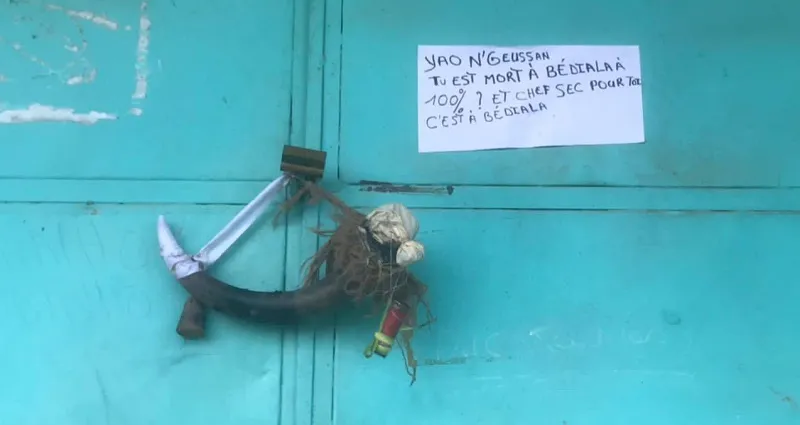 YAO N'GEUSSAN
TU EST MORT À BÉDIALA À
100% ? ET CHEF SEC POUR TOI
C'EST À BÉDIALA